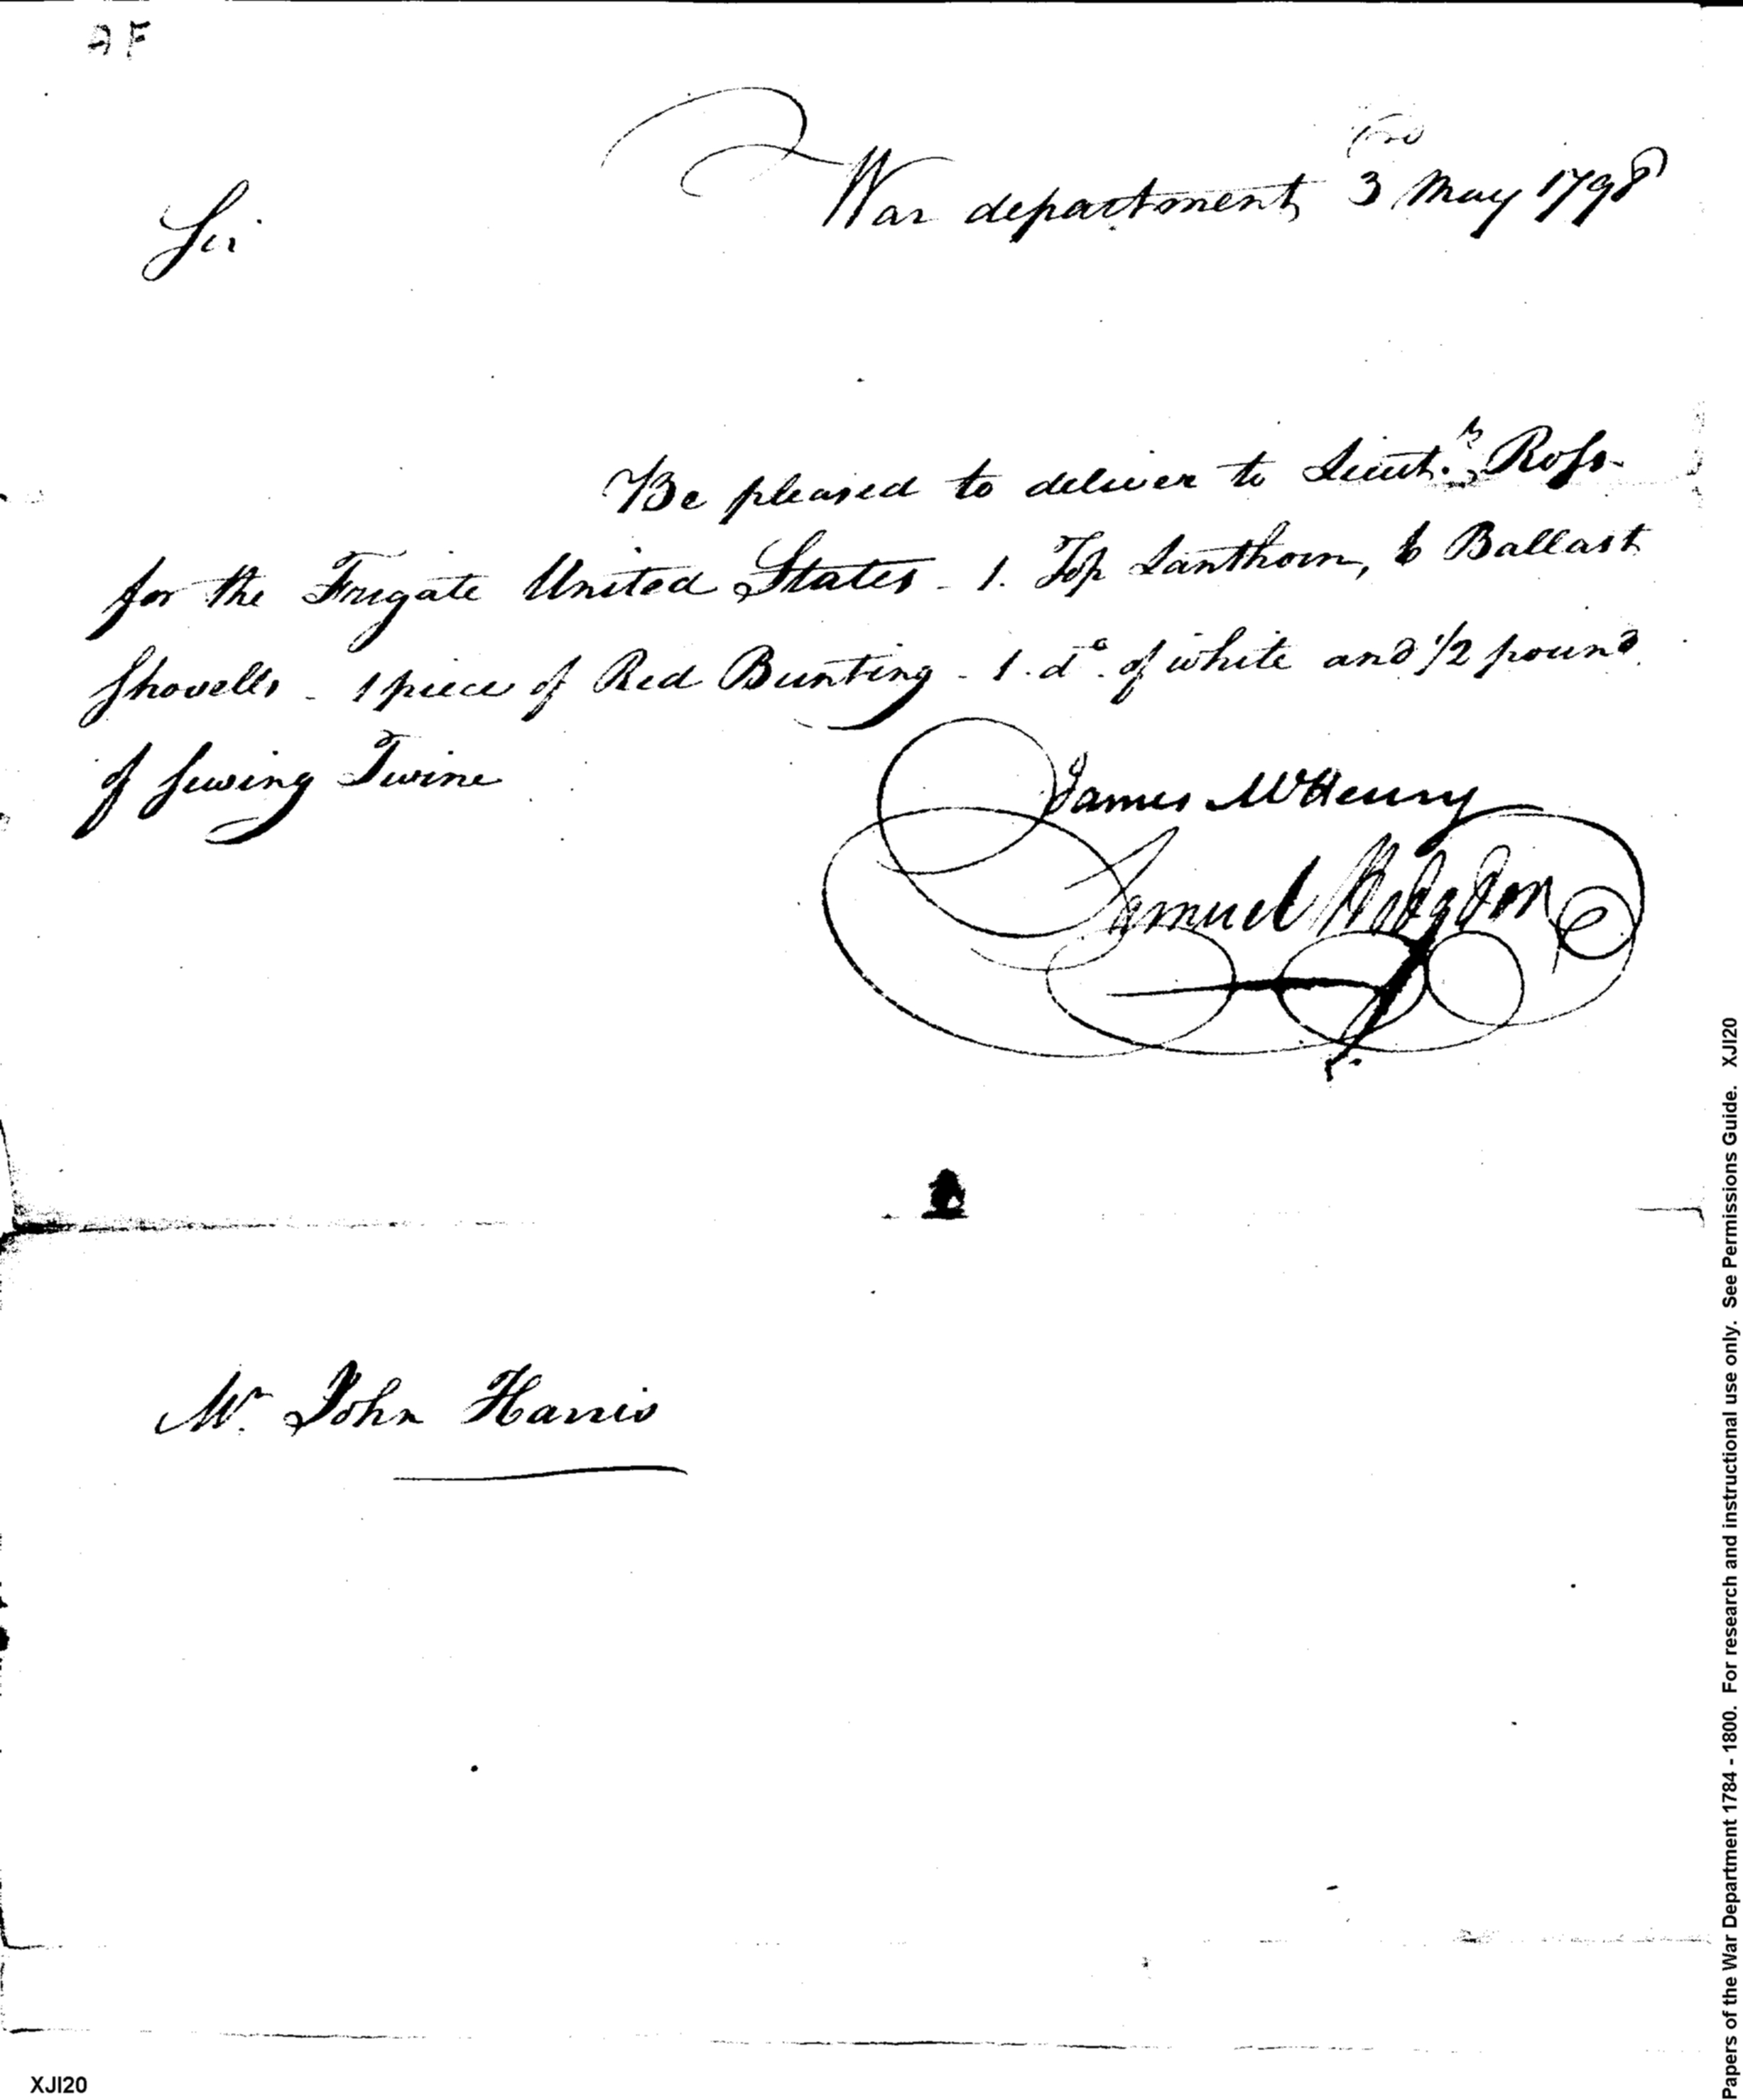 AF
War department 3 May 1798
Sir
Be pleased to deliver to Lieut. Ross
for the Frigate United States - 1. Top Lanthorn, 6 Ballast
Shovells - 1 piece of Red Bunting - 1. do. of white and 1/2 pound
of sewing Twine
James McHenry
Samuel Hodgdon
Mr. John Harris
Papers of the War Department 1784 - 1800. For research and instructional use only. See Permissions Guide. XJI20
XJI20